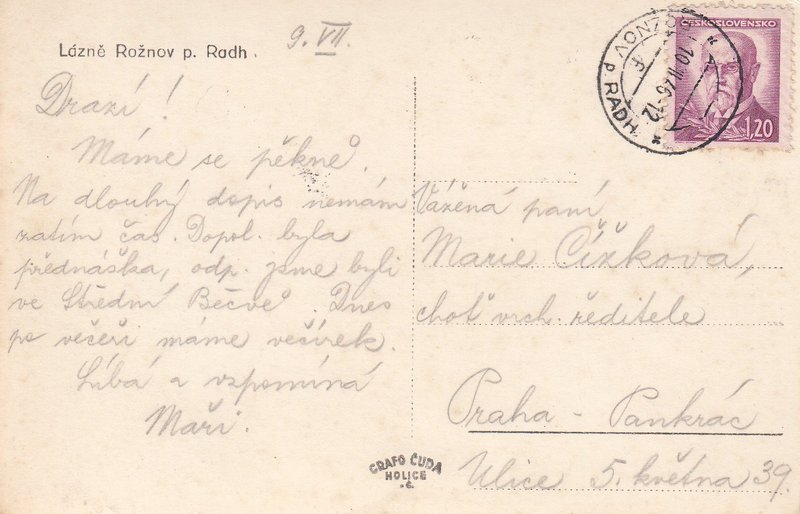 Lázně Rožnov p. Radh.
9. VII.
Drazí!
Máme se pěkně.
Na dlouhý dopis nemám
zatím čas. Dopol. byla
přednáška, odp. jsme byli
ve Střední Bečvě. Dnes
po večeři máme večírek.
Líbá a vzpomíná
Maři.
ČESKOSLOVENSKO
1,20
ROŽNOV P. RADH.
10.VII.46-12
Vážená paní
Marie Čížková,
choť vrch. ředitele
Praha - Pankrác
Ulice 5. května 39.
GRAFO ČUDA
HOLICE